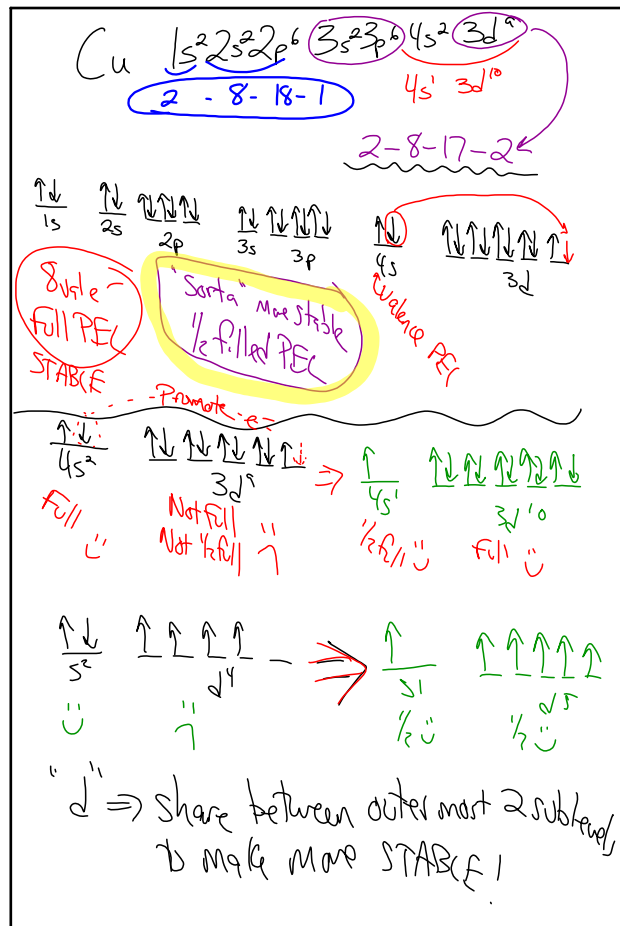 Cu 1s² 2s² 2p⁶ 3s² 3p⁶ 4s² 3d⁹
4s¹ 3d¹⁰
2 - 8 - 18 - 1
2 - 8 - 17 - 2
1s 2s 2p 3s 3p 4s 3d
8 vale-
Full PEL
STABLE
"Sorta" more stable
1/2 filled PEL
valence PEL
Promote e-
4s² 3d⁹ ⇒ 4s¹ 3d¹⁰
Full
Not Full
Not 1/2 full
1/2 full
Full
s² d⁴ s¹ d⁵
1/2 1/2
"d" ⇒ share between outermost 2 sublevels
to make more STABLE!